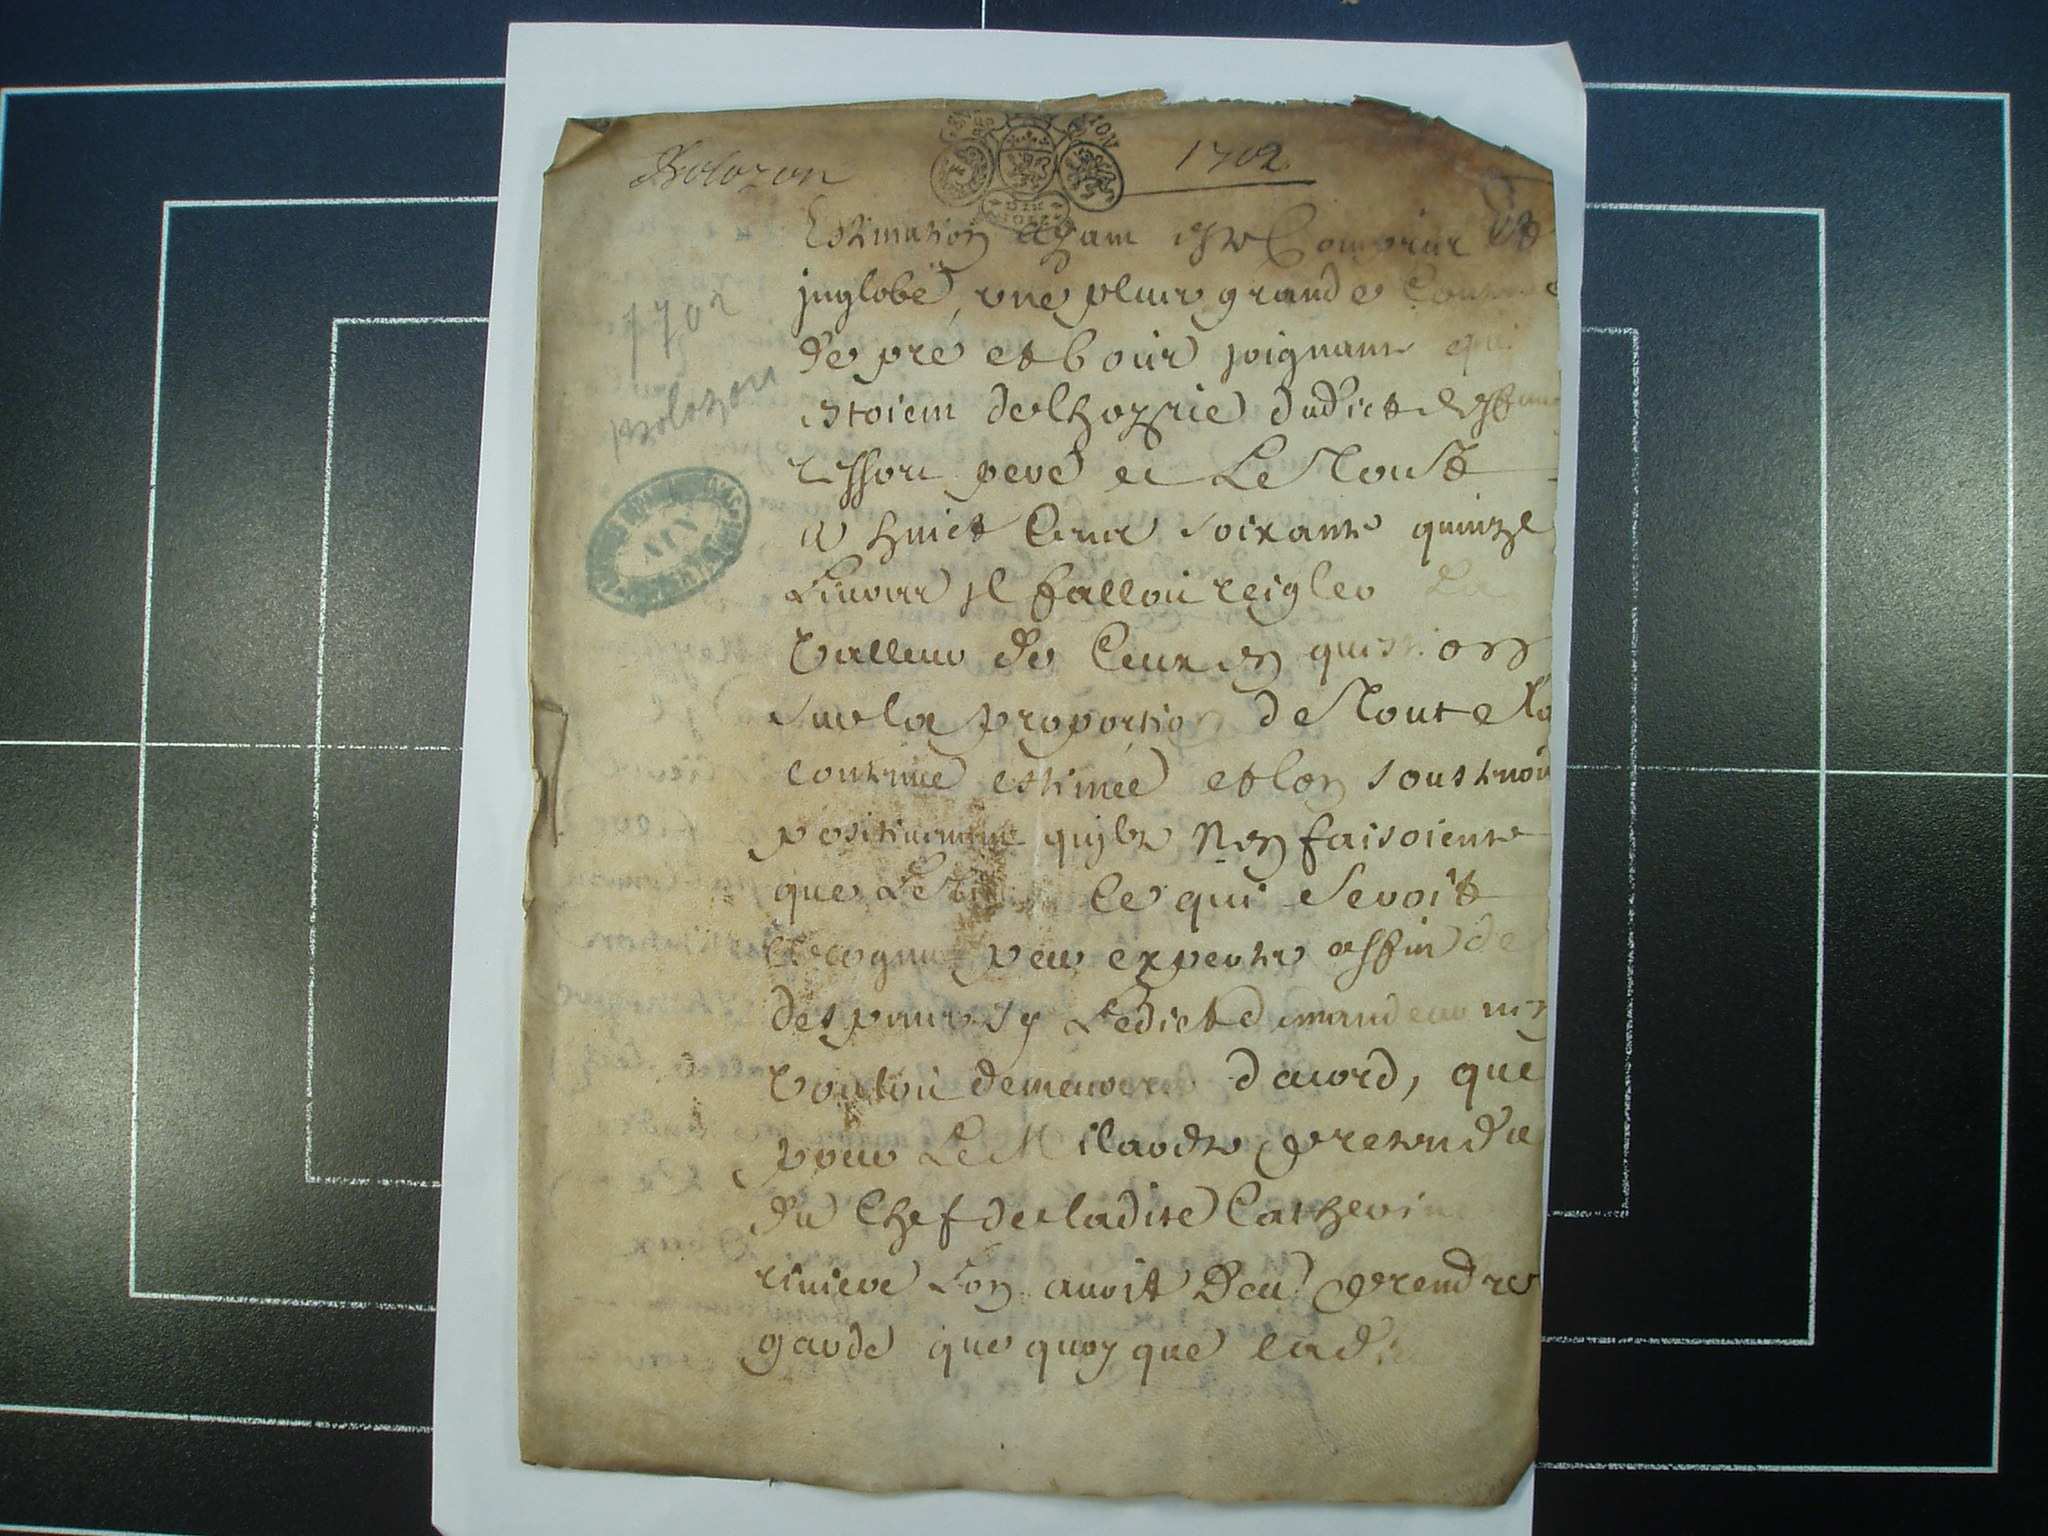 Bolozon
1702
1702
Bolozon
AIN
Estimation ayant este Comprise Et
juglobé, une plus grande
de pré et bois joignant qui
estoient de lhoyrie dudict deffunt
pere et Le Tout
a huict Cents soixante quinze
Liures jl falloit reigler La
Valleur de Ceux en question
sur la proportion de Toute La
continue estimée et lon soustenoit
positiuement quils Nen faisoient
que Le Ce qui seroit
recognu par experts affin de
despartir sy Ledict demandeur
Vouloit demeurer dacord, que
pour Le Tiers pretendu
du Chef de ladite Catherine
riuiere Lon auoit Deu prendre
garde que quoy que ladite